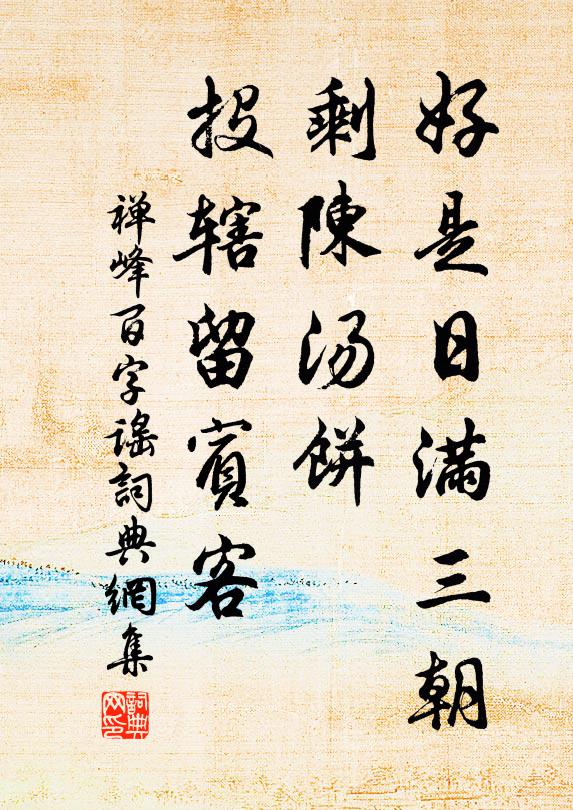 好是日满三朝
剩陳汤餅
投辖留賓客
禅峰百字谣詞典網集
詞典
网印